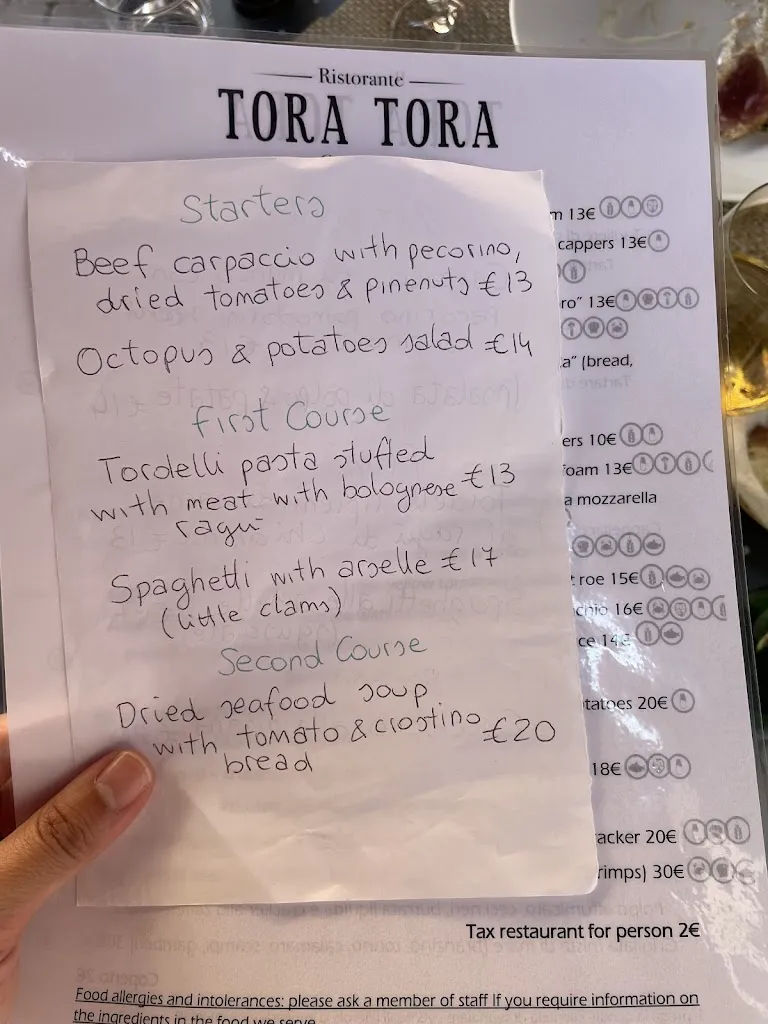 Ristorante
TORA TORA
Starters
Beef carpaccio with pecorino,
dried tomatoes & pinenuts €13
Octopus & potatoes salad €14
First Course
Tordelli pasta stuffed
with meat with bolognese €13
ragù
Spaghetti with arselle €17
(little clams)
Second Course
Dried seafood soup
with tomato & crostino €20
bread
13€
cappers 13€
ro" 13€
a" (bread,
ers 10€
foam 13€
a mozzarella
roe 15€
chio 16€
ce 14€
tatoes 20€
18€
acker 20€
rimps) 30€
Tax restaurant for person 2€
Food allergies and intolerances: please ask a member of staff If you require information on
the ingredients in the food we serve